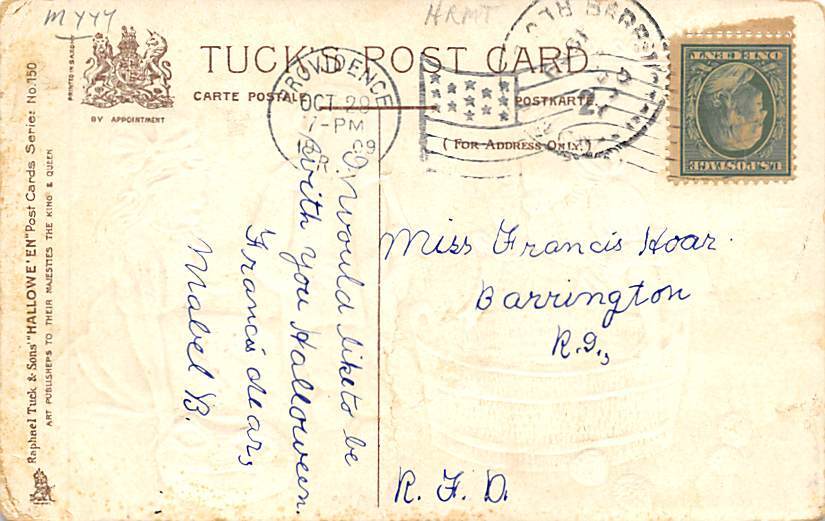 M yyy
HRMT
TUCK'S POST CARD
CARTE POSTALE
POSTKARTE.
(FOR ADDRESS ONLY.)
BY APPOINTMENT
PROVIDENCE
OCT 29
7-PM
09
R.I.
27
ONE CENT
U.S. POSTAGE
Raphael Tuck & Sons' "HALLOWE'EN" Post Cards Series No. 150
ART PUBLISHERS TO THEIR MAJESTIES THE KING & QUEEN
I would like to be
with you Halloween.
Francis dear,
Mabel B.
Miss Francis Hoar.
Barrington
R.I.,
R. F. D.